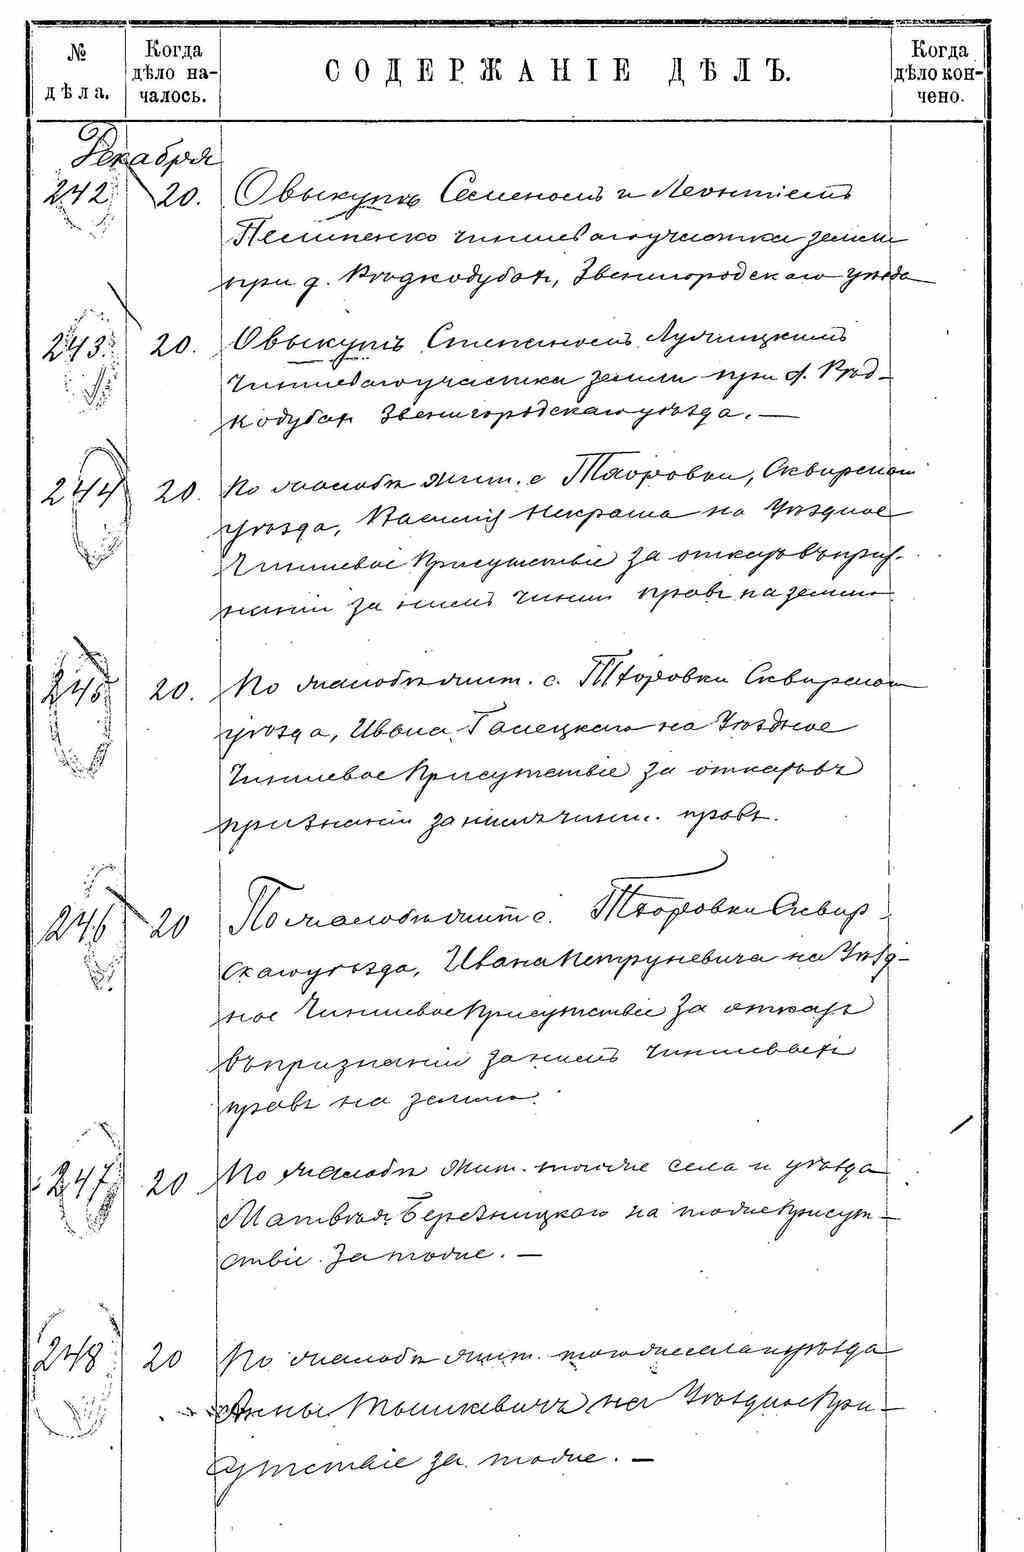 № дѣла.
Когда дѣло на-чалось.
СОДЕРЖАНІЕ ДѢЛЪ.
Когда дѣло кон-чено.
Декабря
242 20. О выкупѣ Семеномъ и Леонтіемъ
Пилипенко чиншеваго участка земли
при д. Рѣдкодубахъ, Звенигородскаго уѣзда
243 20. О выкупѣ Степаномъ
Чиншеваго участка земли при д. Рѣд-
кодубах Звенигородскаго уѣзда. —
244 20. По жалобѣ жит. с. Тхоровки, Сквирскаго
уѣзда, Василія Некраша на Уѣздное
Чиншевое Присутствіе за отказъ въ приз-
наніи за нимъ чинш правъ на землю
245 20. По жалобѣ жит. с. Тхоровки Сквирскаго
уѣзда, Ивана Галецкаго на Уѣздное
Чиншевое Присутствіе за отказъ въ
признаніи за нимъ чинш. правъ.
246 20 По жалобѣ жит с. Тхоровки Сквир-
скаго уѣзда, Ивана Петруневича на Уѣзд-
ное Чиншевое Присутствіе за отказъ
въ признаніи за нимъ чиншевыхъ
правъ на землю.
247 20 По жалобѣ жит. того же села и уѣзда
Матвѣя Березницкаго на тоже Присут-
ствіе за тоже. —
248 20 По жалобѣ жит. того же села и уѣзда
Анны Тышкевичъ на Уѣздное При-
сутствіе за тоже. —